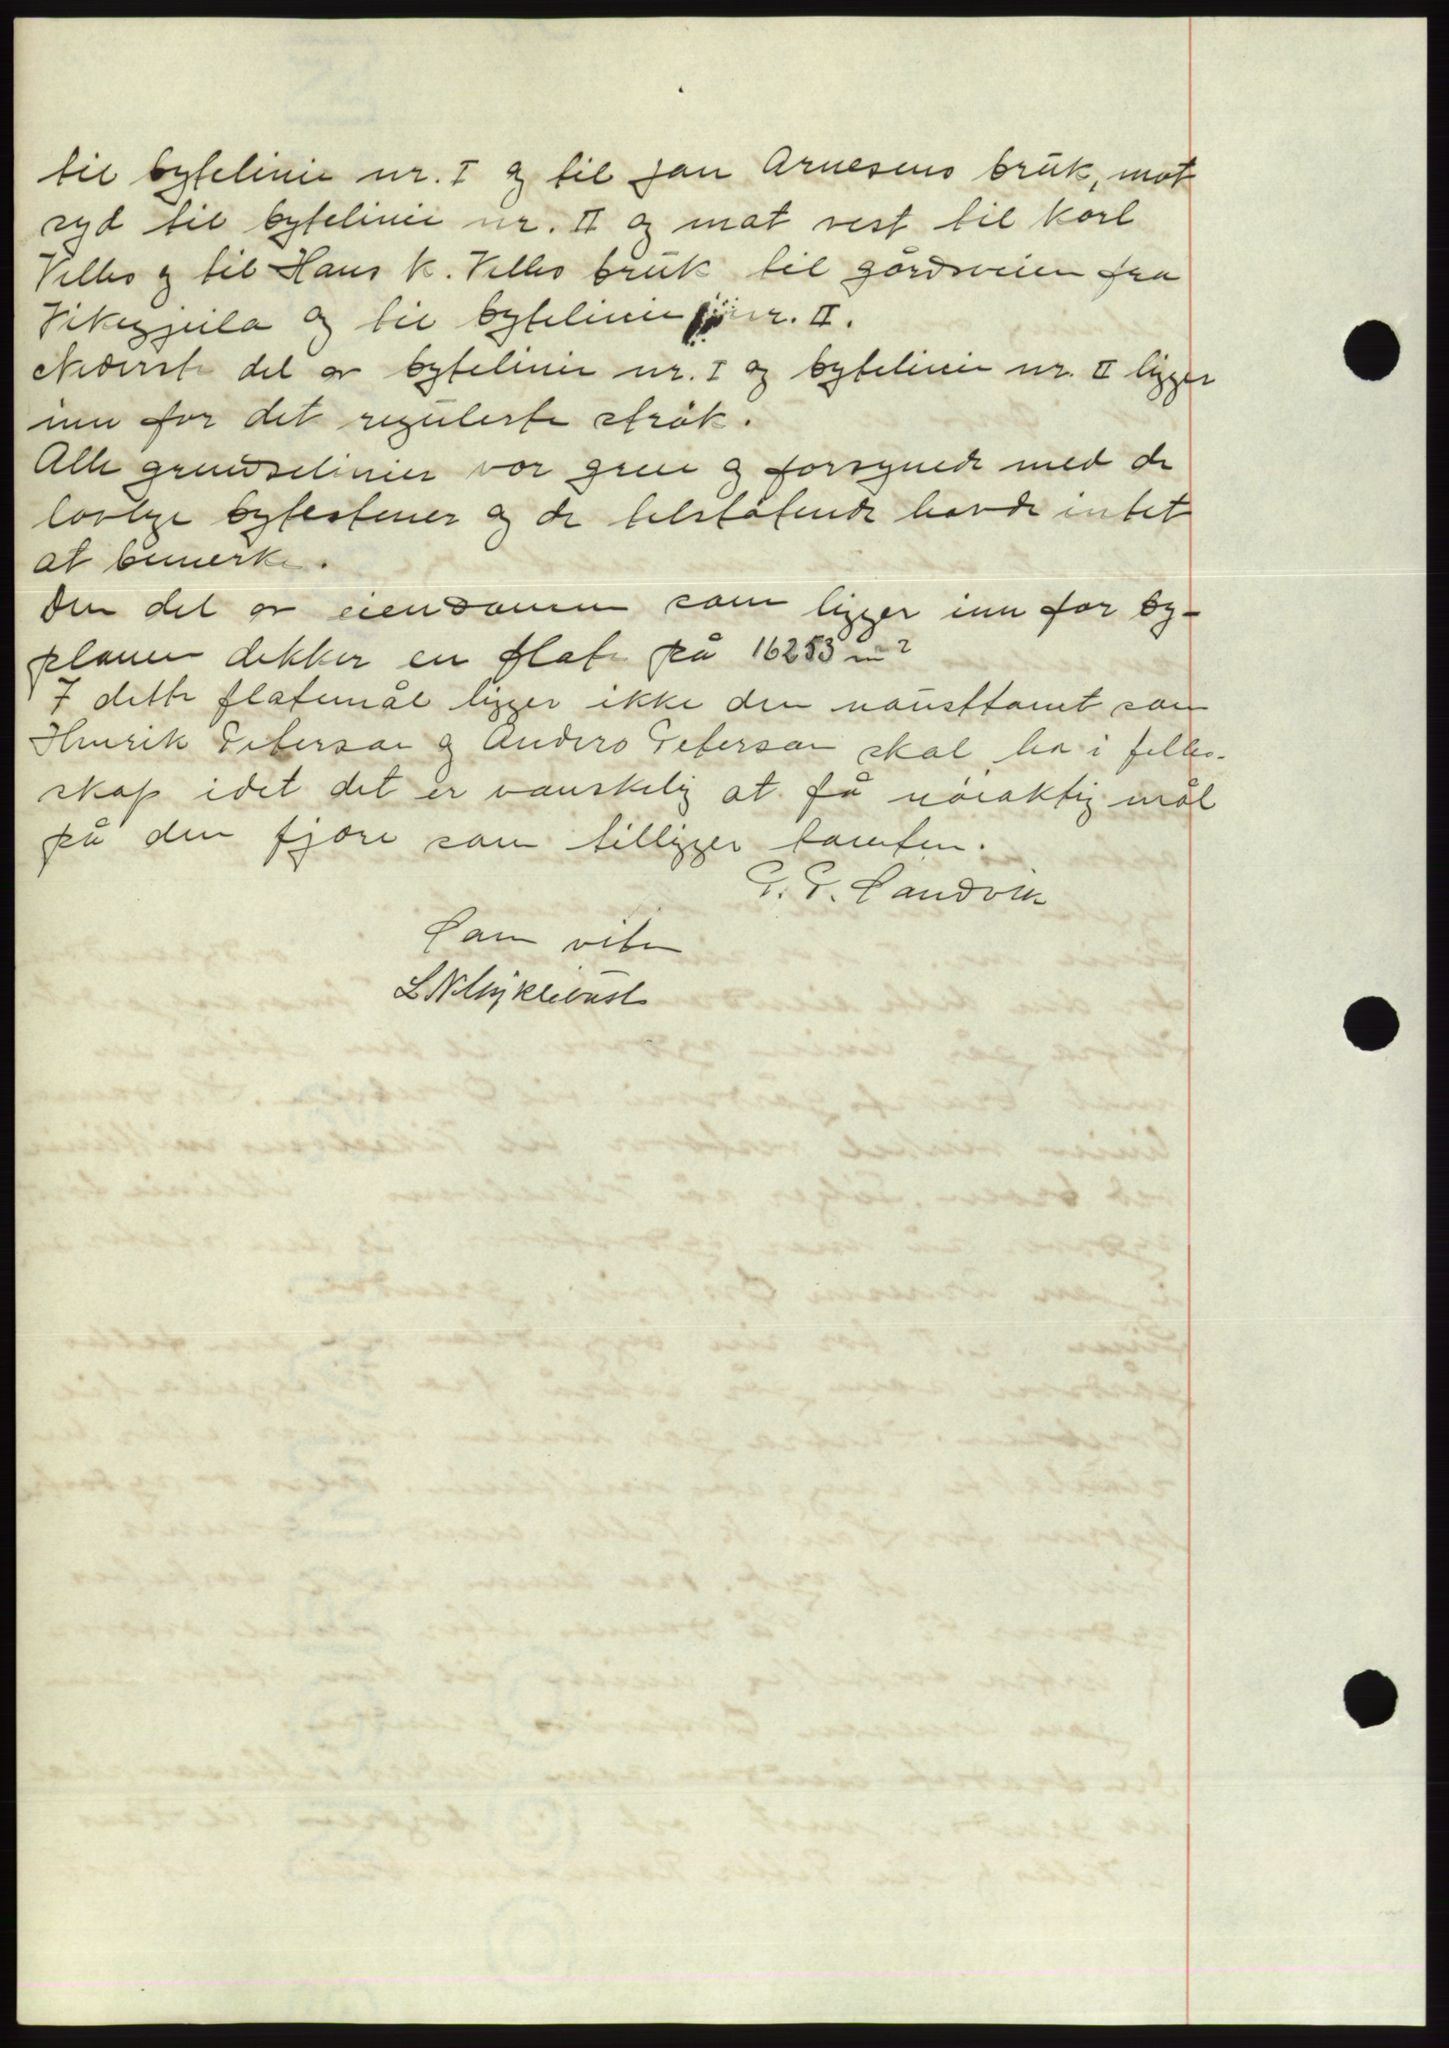 til bytelinie nr. I og til Jan Arnesens brŭk, mot
syd til bytelinie nr. II og mot vest til Karl
Velles og til Hans K. Velles brŭk til gårdsveien fra
Vikegjeila og til bytelinie nr. II.
Nederste del av bytelinie nr. I og bytelinie nr. II ligger
inn for det regulerte strøk.
Alle grenselinier var greie og forsynede med de
lovlige bytestener og de tilstøtende havde intet
at bemerke.
Den del av eiendomen som ligger inn for by-
planen dekker en flate på 16253 m²
I dette flatemål ligger ikke den nausttomt som
Henrik Peterson og Anders Peterson skal ha i felles-
skap idet det er vanskelig at få nøiaktig mål
på den fjøre som tilligger tomten.
P. P. Sandvik
Som viten
L N Myklebŭst